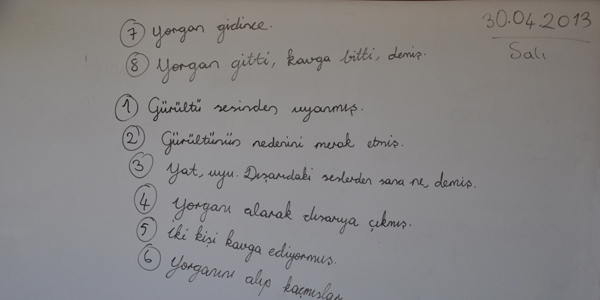 30.04.2013
Salı
7 Yorgan gidince.
8 Yorgan gitti, kavga bitti, demiş.
1 Gürültü sesinden uyanmış.
2 Gürültünün nedenini merak etmiş.
3 Yat, uyu. Dışarıdaki seslerden sana ne, demiş.
4 Yorganı alarak dışarıya çıkmış.
5 İki kişi kavga ediyormuş.
6 Yorganını alıp kaçmışlar